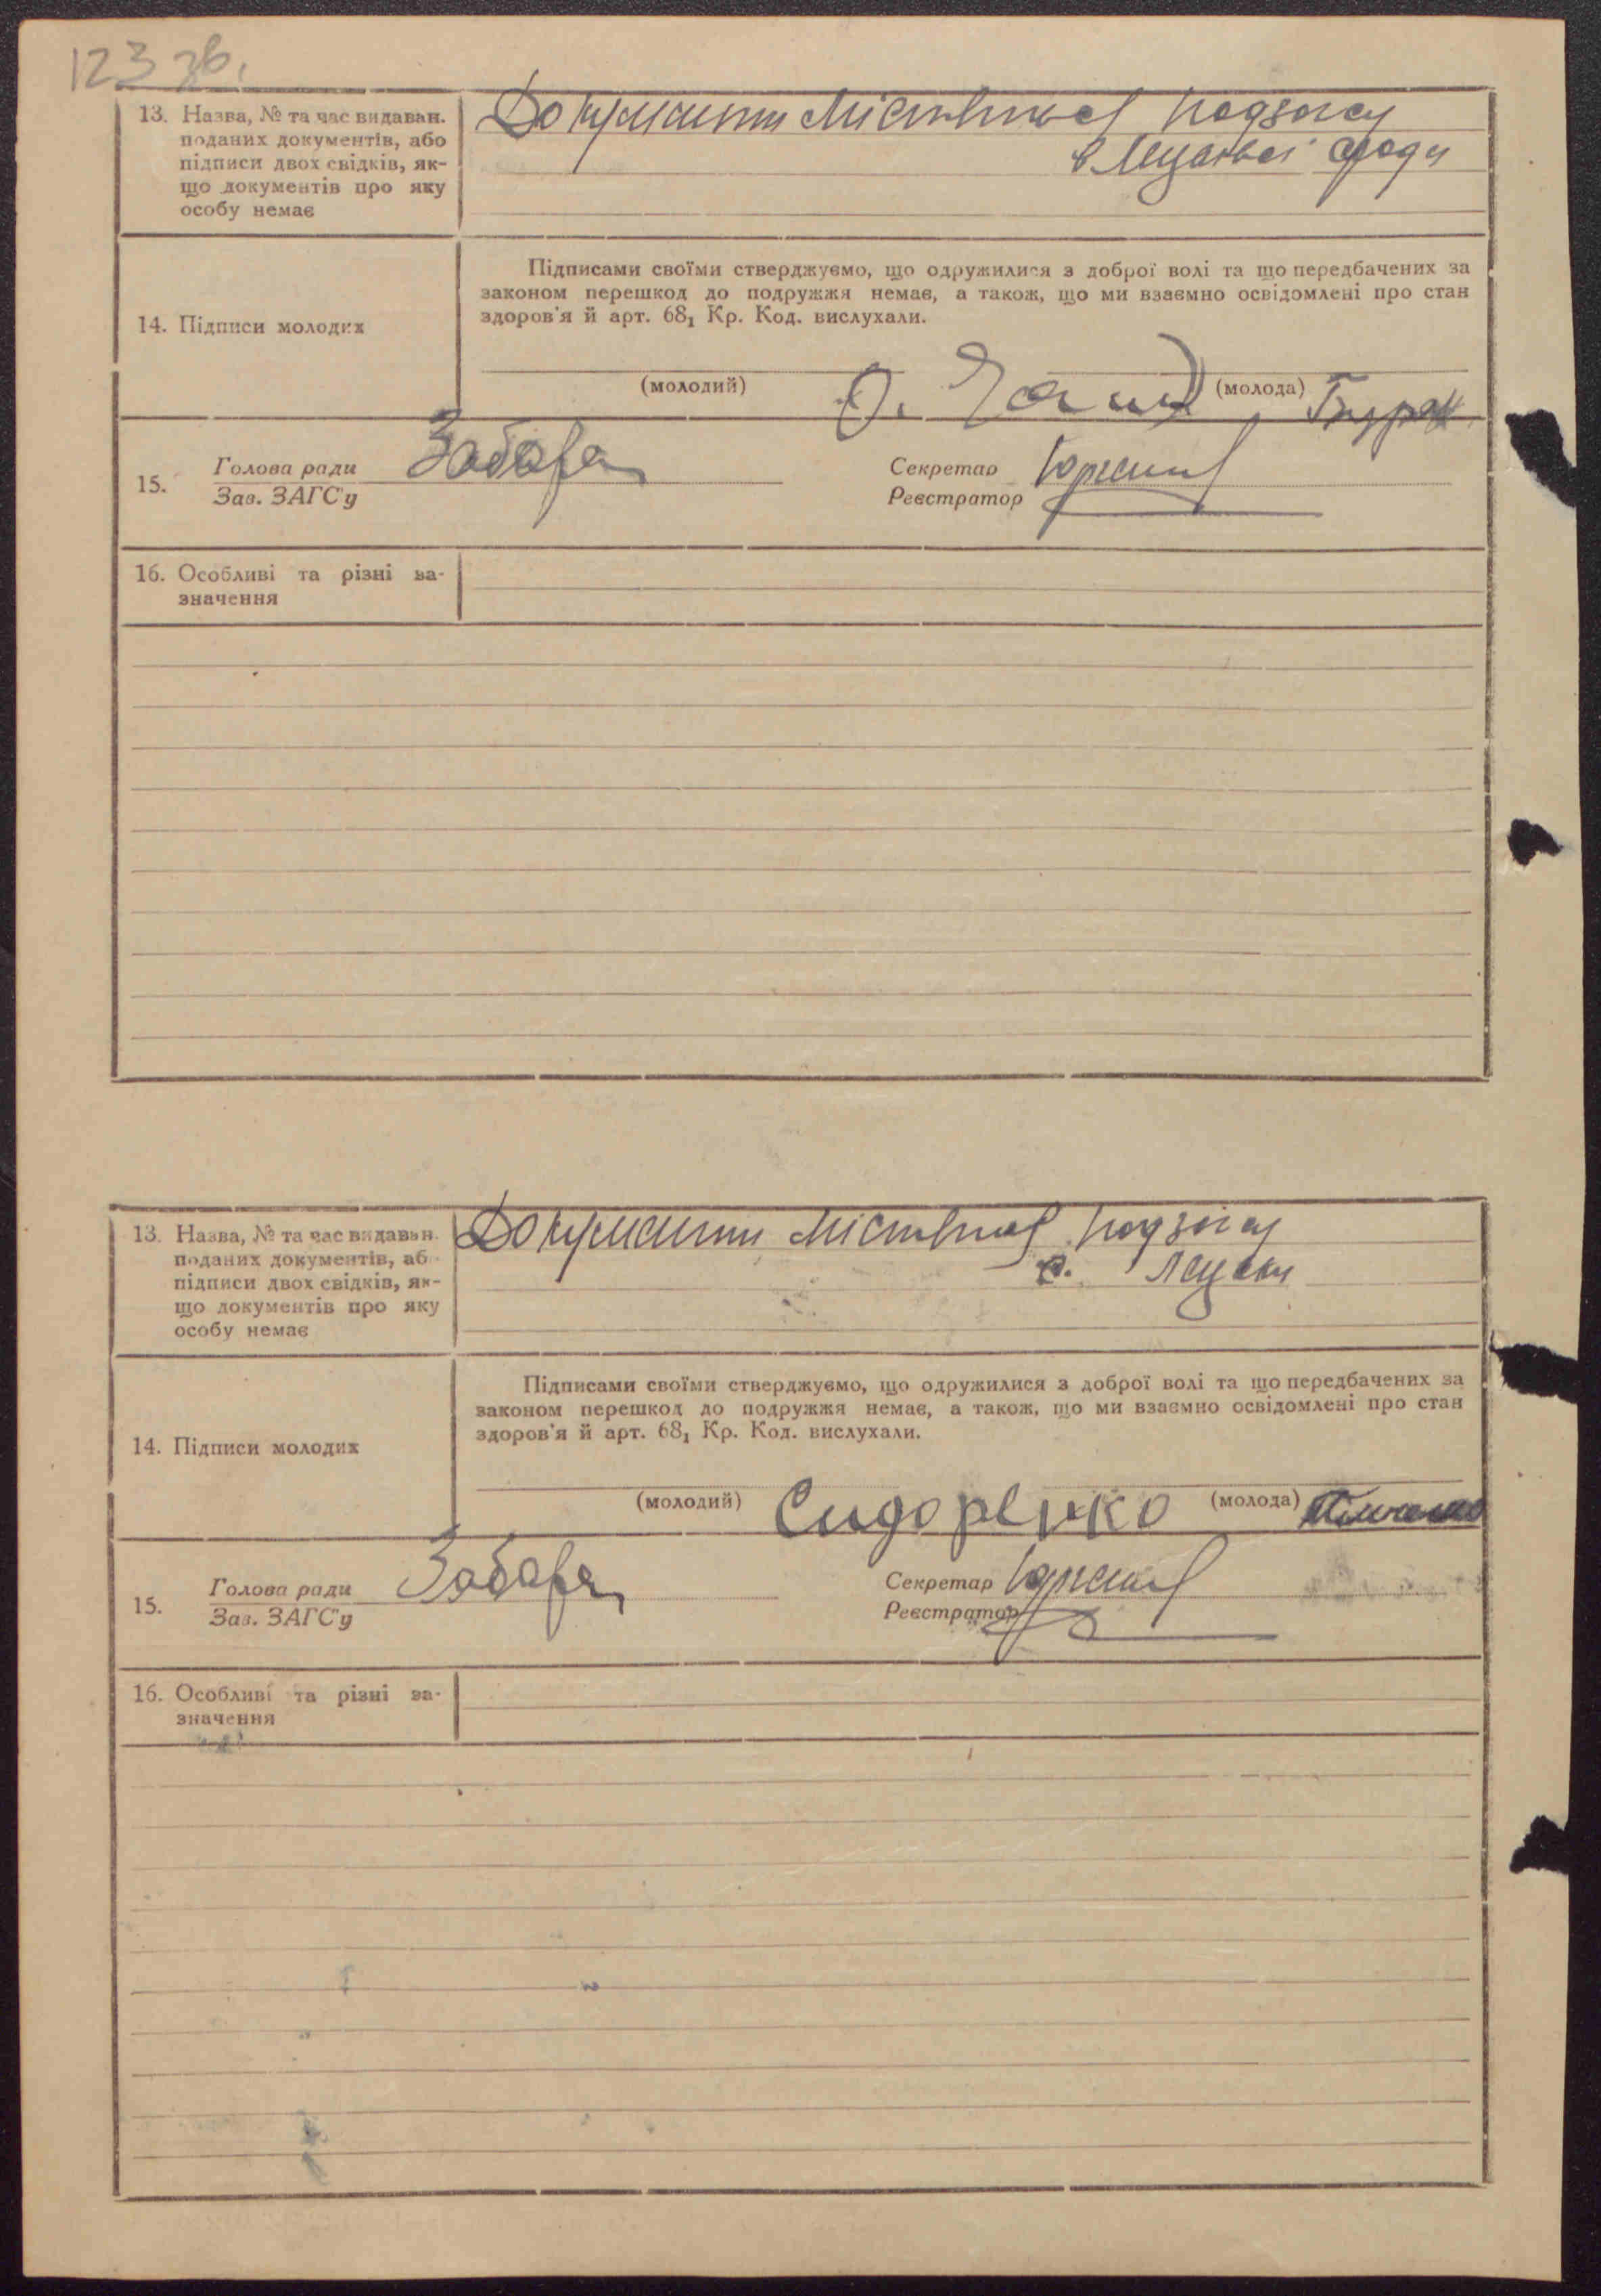 123 зв.
13. Назва, № та час видаван.
поданих документів, або
підписи двох свідків, як-
що документів про яку
особу немає
Документи
14. Підписи молодих
Підписами своїми стверджуємо, що одружилися з доброї волі та що передбачених за
законом перешкод до подружжя немає, а також, що ми взаємно освідомлені про стан
здоров'я й арт. 68₁ Кр. Код. вислухали.
(молодий) (молода)
15. Голова ради Забара Секретар
Зав. ЗАГС'у Реєстратор
16. Особливі та різні за-
значення
13. Назва, № та час видаван.
поданих документів, аб
підписи двох свідків, як-
що документів про яку
особу немає
Документи
с.
14. Підписи молодих
Підписами своїми стверджуємо, що одружилися з доброї волі та що передбачених за
законом перешкод до подружжя немає, а також, що ми взаємно освідомлені про стан
здоров'я й арт. 68₁ Кр. Код. вислухали.
(молодий) Сидоренко (молода)
15. Голова ради Забара Секретар
Зав. ЗАГС'у Реєстратор
16. Особливі та різні за-
значення